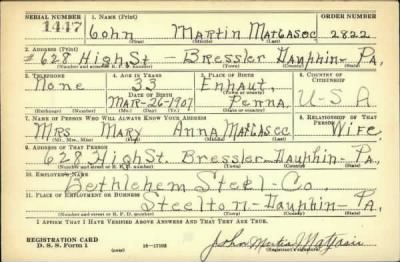 SERIAL NUMBER 1. NAME (Print) ORDER NUMBER
1447 John Martin Matgasec 2822
(First) (Middle) (Last)
2. ADDRESS (Print)
#628 High St - Bressler Dauphin - Pa.
(Number and street or R. F. D. number) (Town) (County) (State)
3. TELEPHONE 4. AGE IN YEARS 5. PLACE OF BIRTH 6. COUNTRY OF CITIZENSHIP
None 33 Enhaut,
DATE OF BIRTH (Town or county)
MAR-26-1907 Penna. U-S A
(Exchange) (Number) (Mo.) (Day) (Yr.) (State or country)
7. NAME OF PERSON WHO WILL ALWAYS KNOW YOUR ADDRESS 8. RELATIONSHIP OF THAT PERSON
MRS MARY Anna MATGASEC Wife
(Mr., Mrs., Miss) (First) (Middle) (Last)
9. ADDRESS OF THAT PERSON
628 High St. Bressler-Dauphin-Pa.
(Number and street or R. F. D. number) (Town) (County) (State)
10. EMPLOYER'S NAME
Bethlehem Steel-Co.
11. PLACE OF EMPLOYMENT OR BUSINESS
Steelton-Dauphin-Pa.
(Number and street or R. F. D. number) (Town) (County) (State)
I AFFIRM THAT I HAVE VERIFIED ABOVE ANSWERS AND THAT THEY ARE TRUE.
REGISTRATION CARD
D. S. S. Form 1 (over) John Martin